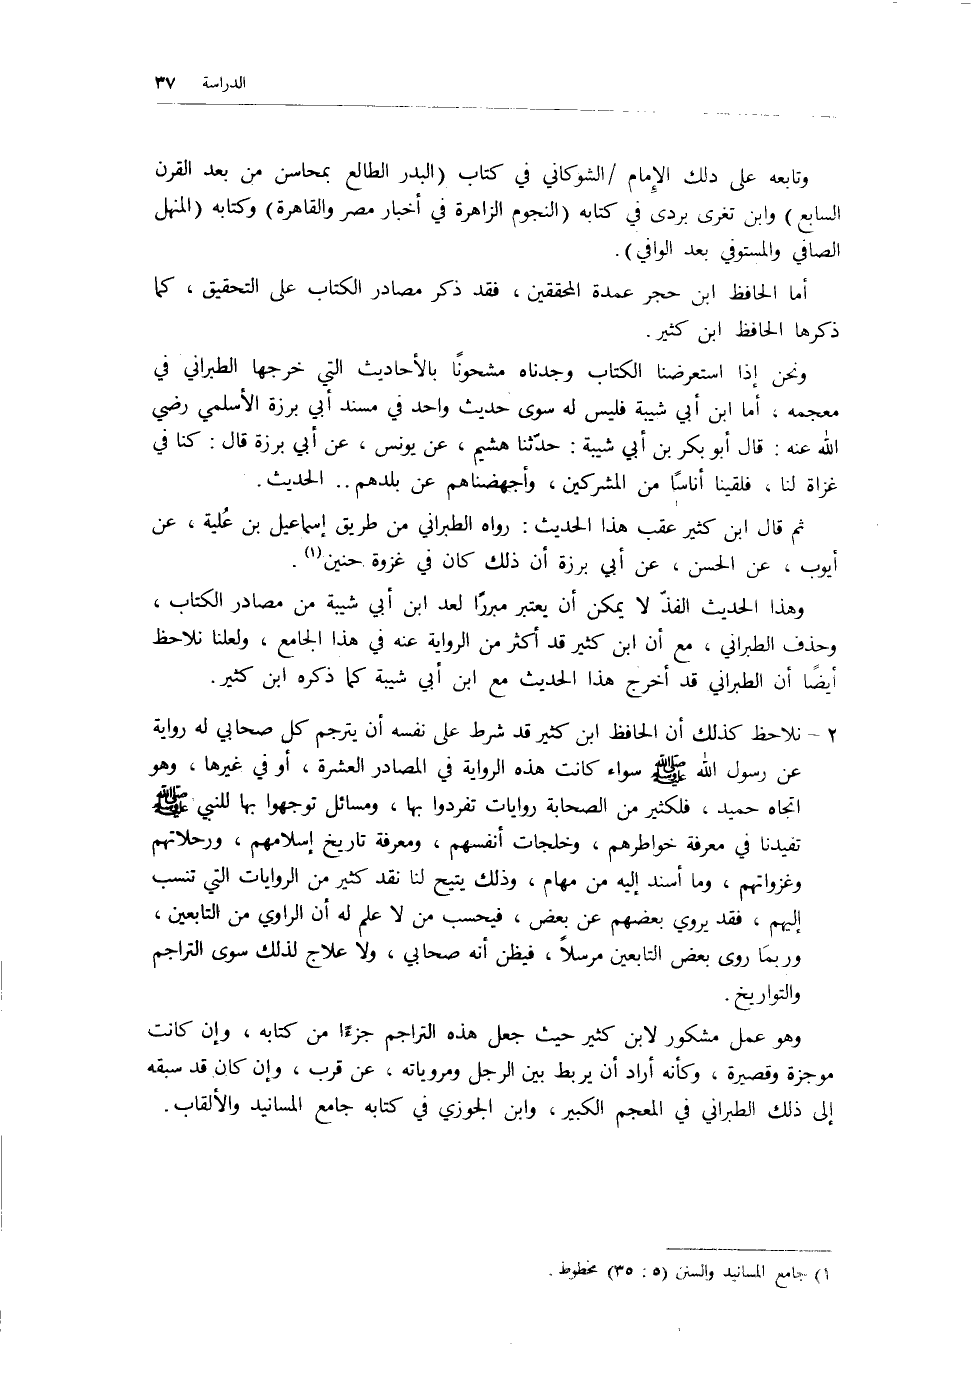 الدراسة ٣٧
وتابعه على ذلك الإمام /الشوكاني في كتاب (البدر الطالع بمحاسن من بعد القرن
السابع) وابن تغرى بردى في كتابه (النجوم الزاهرة في أخبار مصر والقاهرة) وكتابه (المنهل
الصافي والمستوفي بعد الوافي).
أما الحافظ ابن حجر عمدة المحققين ، فقد ذكر مصادر الكتاب على التحقيق ، كما
ذكرها الحافظ ابن كثير .
ونحن إذا استعرضنا الكتاب وجدناه مشحونًا بالأحاديث التي خرجها الطبراني في
معجمه ، أما ابن أبي شيبة فليس له سوى حديث واحد في مسند أبي برزة الأسلمي رضي
الله عنه : قال أبو بكر بن أبي شيبة : حدّثنا هشيم ، عن يونس ، عن أبي برزة قال : كنا في
غزاة لنا ، فلقينا أناسًا من المشركين ، وأجهضناهم عن بلدهم .. الحديث .
ثم قال ابن كثير عقب هذا الحديث : رواه الطبراني من طريق إسماعيل بن عُلية ، عن
أيوب ، عن الحسن ، عن أبي برزة أن ذلك كان في غزوة حنين(١) .
وهذا الحديث الفذّ لا يمكن أن يعتبر مبررًا لعد ابن أبي شيبة من مصادر الكتاب ،
وحذف الطبراني ، مع أن ابن كثير قد أكثر من الرواية عنه في هذا الجامع ، ولعلنا نلاحظ
أيضًا أن الطبراني قد أخرج هذا الحديث مع ابن أبي شيبة كما ذكره ابن كثير .
٢ – نلاحظ كذلك أن الحافظ ابن كثير قد شرط على نفسه أن يترجم كل صحابي له رواية
عن رسول الله ﷺ سواء كانت هذه الرواية في المصادر العشرة ، أو في غيرها ، وهو
اتجاه حميد ، فلكثير من الصحابة روايات تفردوا بها ، ومسائل توجهوا بها للنبي ﷺ
تفيدنا في معرفة خواطرهم ، وخلجات أنفسهم ، ومعرفة تاريخ إسلامهم ، ورحلاتهم
وغزواتهم ، وما أسند إليه من مهام ، وذلك يتيح لنا نقد كثير من الروايات التي تنسب
إليهم ، فقد يروي بعضهم عن بعض ، فيحسب من لا علم له أن الراوي من التابعين ،
وربمَا روى بعض التابعين مرسلاً ، فيظن أنه صحابي ، ولا علاج لذلك سوى التراجم
والتواريخ .
وهو عمل مشكور لابن كثير حيث جعل هذه التراجم جزءًا من كتابه ، وإن كانت
موجزة وقصيرة ، وكأنه أراد أن يربط بين الرجل ومروياته ، عن قرب ، وإن كان قد سبقه
إلى ذلك الطبراني في المعجم الكبير ، وابن الجوزي في كتابه جامع المسانيد والألقاب .
١) جامع المسانيد والسنن (٥ : ٣٥) مخطوط .